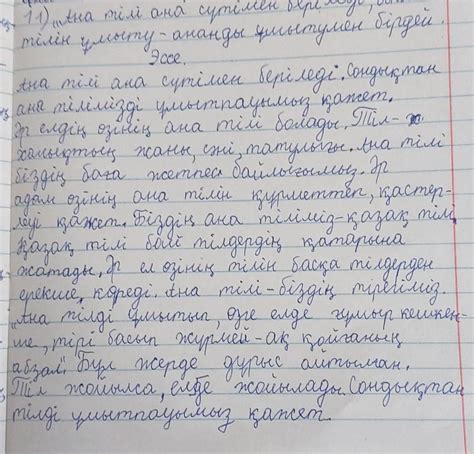 11) „Ана тілі ана сүтімен беріледі,
тілін ұмыту - ананды ұмытумен бірдей.
Эссе.
Ана тілі ана сүтімен беріледі. Сондықтан
ана тілімізді ұмытпауымыз қажет.
Әр елдің өзінің ана тілі болады. Тіл -
халықтың жаны, сәні, Ана тілі
біздің баға жетпес байлығымыз. Әр
адам өзінің ана тілін құрметтеп, қастер-
леуі қажет. Біздің ана тіліміз - қазақ тілі.
Қазақ тілі бай тілдердің қатарына
жатады. Әр ел өзінің тілін басқа тілдерден
ерекше көреді. Ана тілі - біздің тірегіміз.
„Ана тілді ұмытып, өзге елде ғұмыр кешкен-
ше, тірі басып жүрмей-ақ қойғаның
абзал" Бұл жерде дұрыс айтылған.
Тіл жойылса, елде жойылады. Сондықтан
тілді ұмытпауымыз қажет.